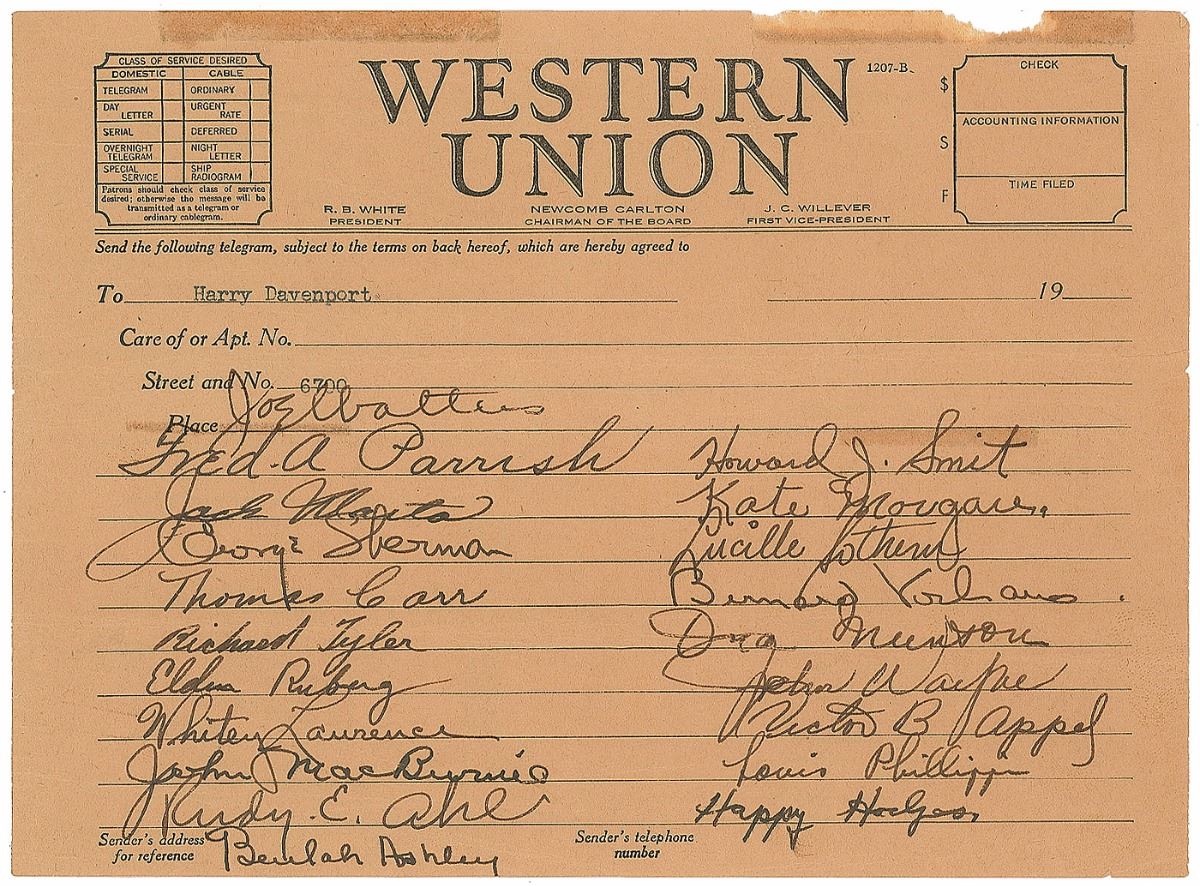 CLASS OF SERVICE DESIRED
DOMESTIC CABLE
TELEGRAM ORDINARY
DAY LETTER URGENT RATE
SERIAL DEFERRED
OVERNIGHT TELEGRAM NIGHT LETTER
SPECIAL SERVICE SHIP RADIOGRAM
Patrons should check class of service
desired; otherwise the message will be
transmitted as a telegram or
ordinary cablegram.
WESTERN
UNION
1207-B
$
S
F
CHECK
ACCOUNTING INFORMATION
TIME FILED
R. B. WHITE
PRESIDENT
NEWCOMB CARLTON
CHAIRMAN OF THE BOARD
J. C. WILLEVER
FIRST VICE-PRESIDENT
Send the following telegram, subject to the terms on back hereof, which are hereby agreed to
To Harry Davenport 19
Care of or Apt. No.
Street and No. 6700
Place
Fred. A Parrish
Jack
George Sherman
Thomas Carr
Richard Tyler
Whitey Laurence
John MacBurnie
Rudy. E. Ahl
Beulah Ashley
Howard J. Smit
Kate
Lucille
Bernard
Ona Munson
John Wayne
Victor B Appel
Louis
Happy Hodges.
Sender's address
for reference
Sender's telephone
number